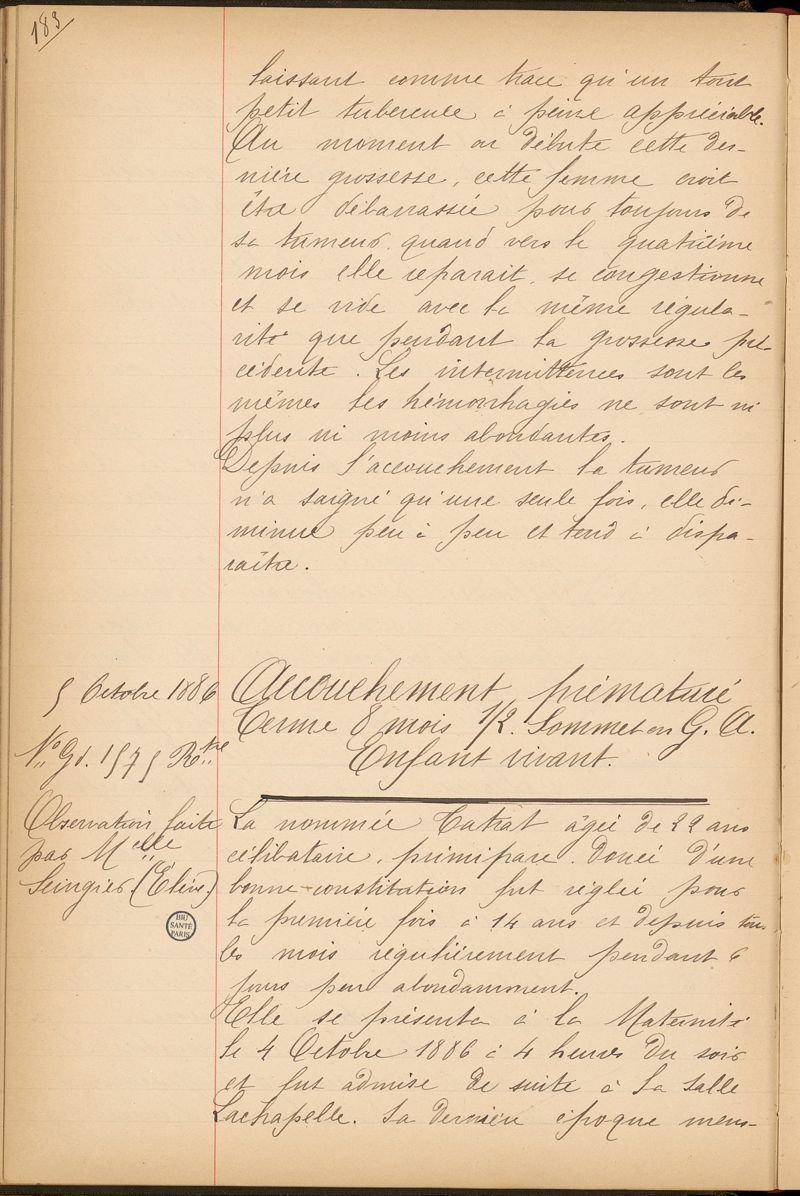 183
laissant comme trace qu'un tout
petit tubercule à peine appréciable.
Au moment où débute cette der-
nière grossesse, cette femme croit
être débarrassée pour toujours de
sa tumeur quand vers le quatrième
mois elle reparait, se congestionne
et se vide avec la même régula-
rité que pendant la grossesse pré-
cédente. Les intermittences sont les
mêmes les hémorrhagies ne sont ni
plus ni moins abondantes.
Depuis l'accouchement la tumeur
n'a saigné qu'une seule fois, elle di-
minue peu à peu et tend à dispa-
raître.
5 Octobre 1886
Accouchement prématuré
Terme 8 mois 1/2. Sommet en G. A.
Enfant vivant.
No Gd. 1575 Rtre
Observation faite
par Melle
Seingier. (Élève.)
La nommée Catrat âgée de 22 ans
célibataire, primipare. Douée d'une
bonne constitution fut réglée pour
la première fois à 14 ans et depuis tous
les mois régulièrement pendant 6
jours peu abondamment.
Elle se présenta à la Maternité
le 4 Octobre 1886 à 4 heures du soir
et fut admise de suite à la salle
Lachapelle. Sa dernière époque mens-
BIU
SANTÉ
PARIS